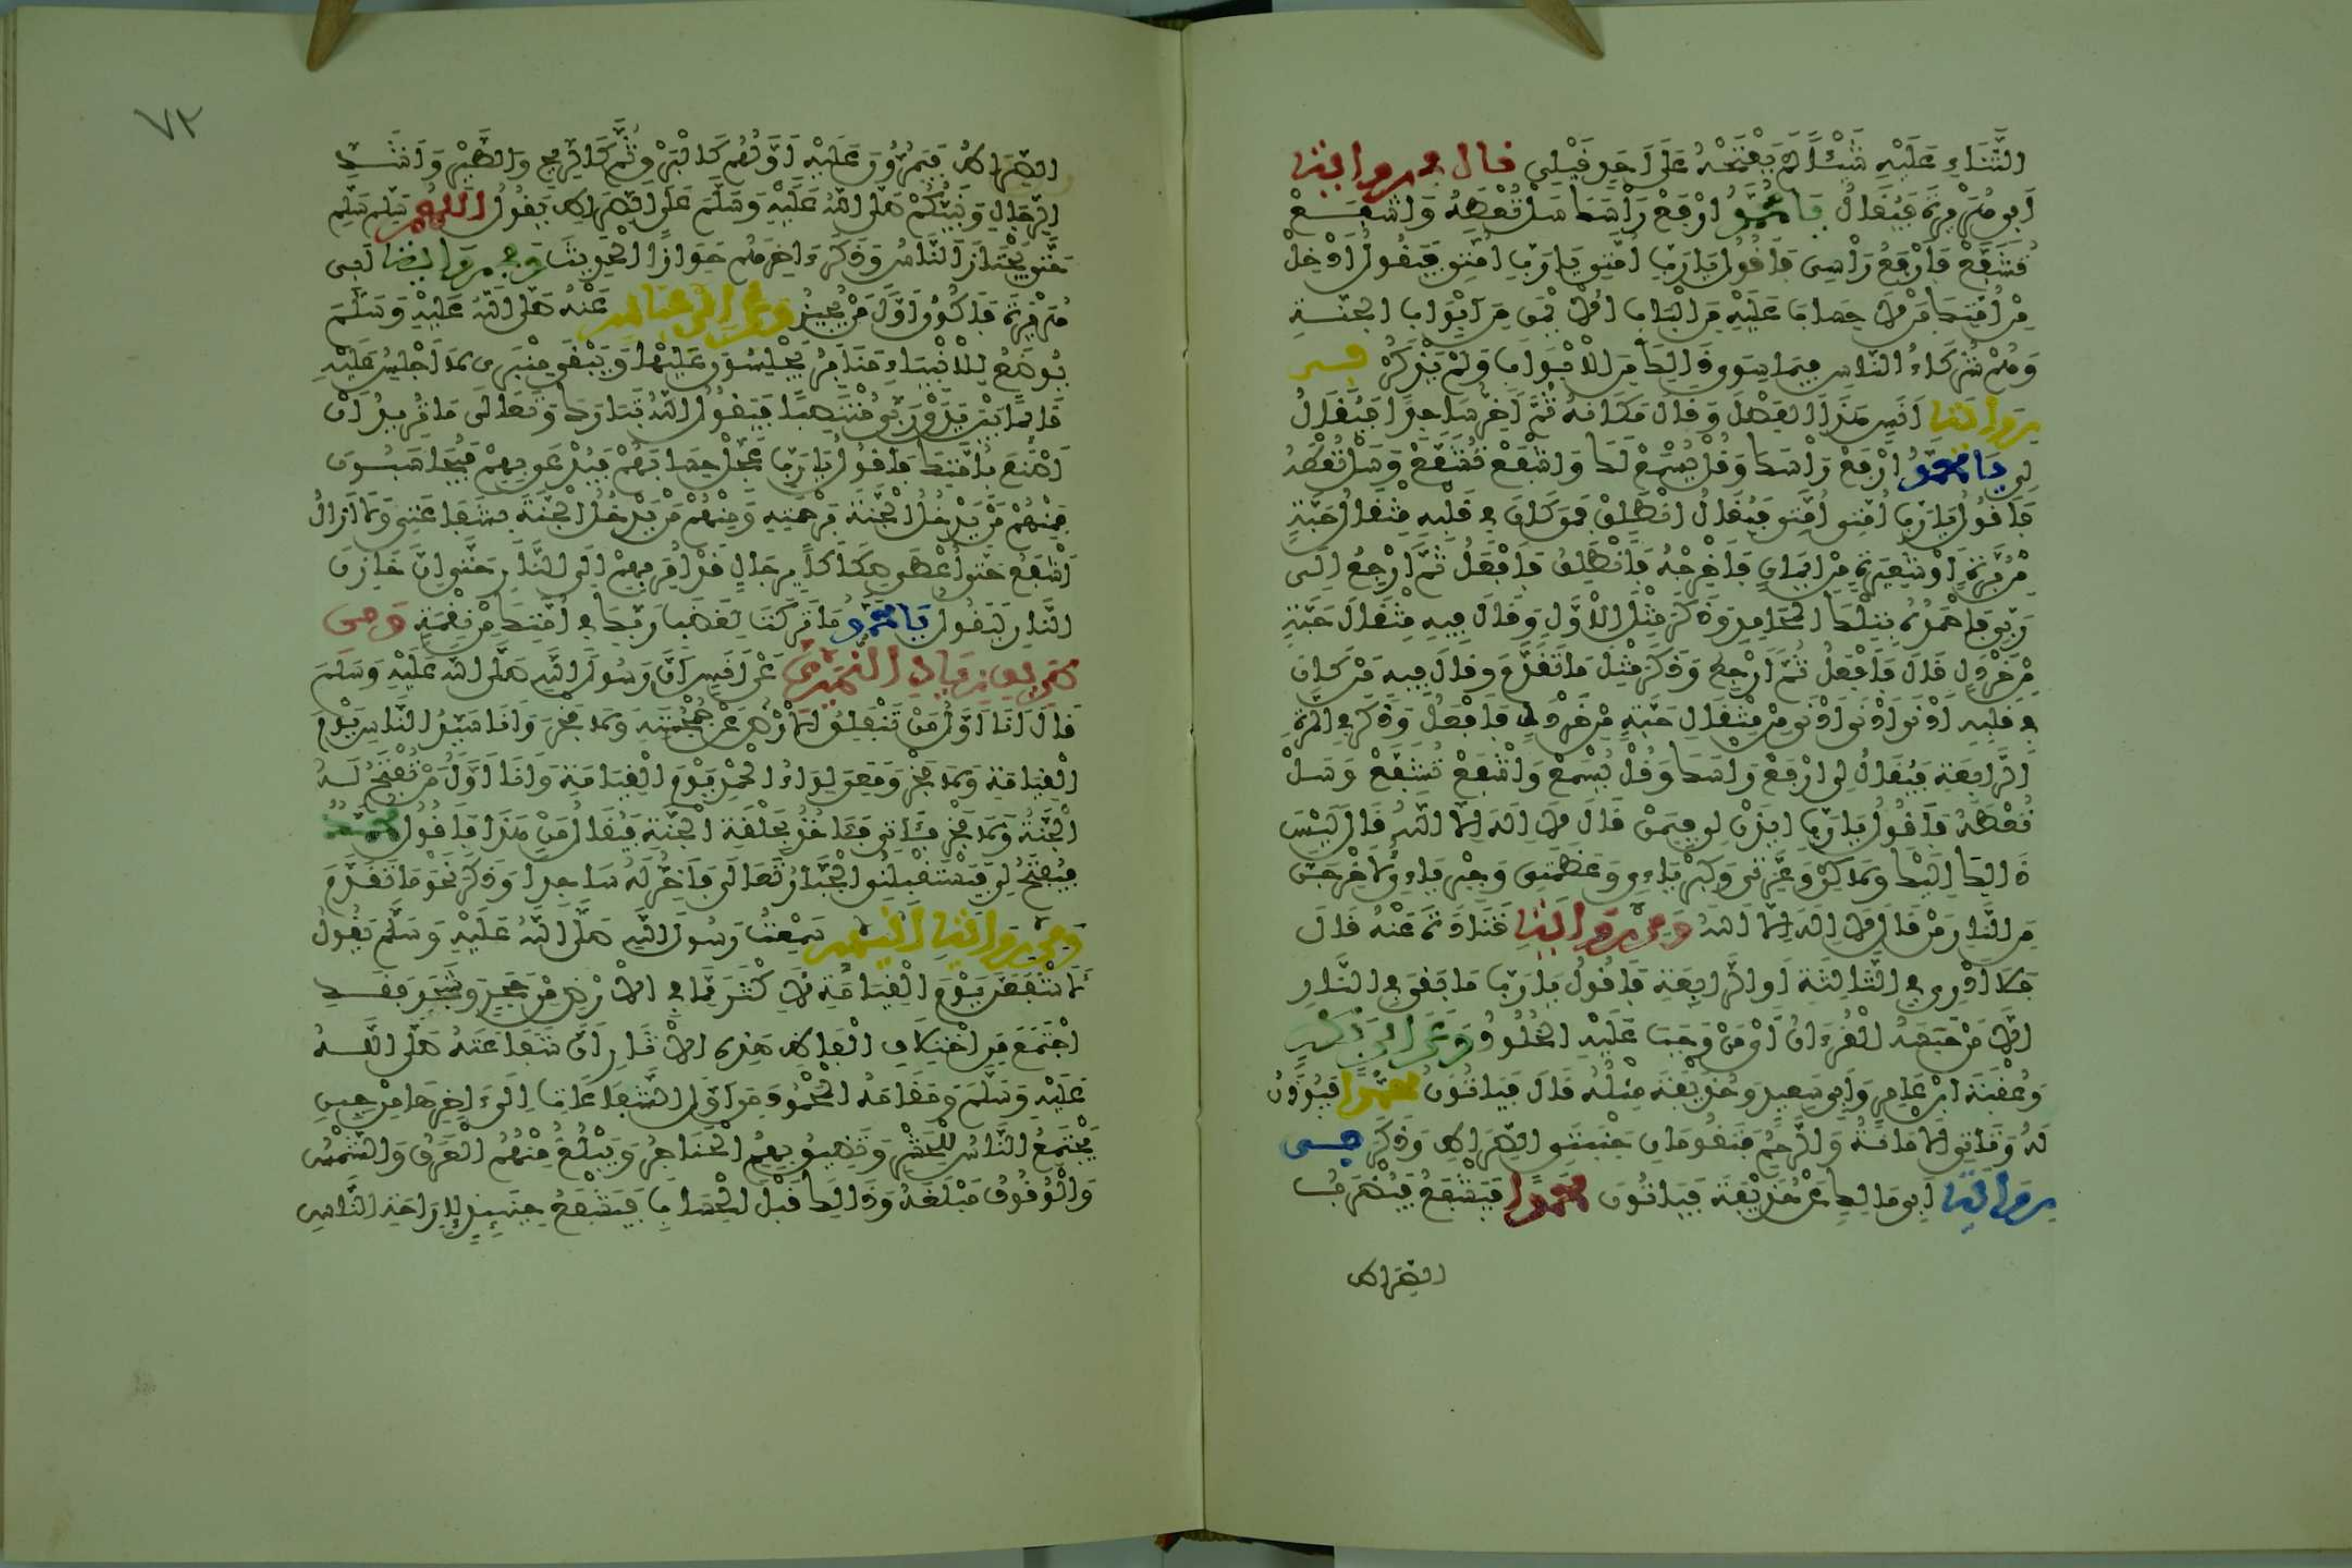 الثَّنَاءِ عَلَيْهِ شَيْئًا لَمْ يَفْتَحْهُ عَلَى أَحَدٍ قَبْلِي قال في رواية
أَبِي هُرَيْرَةَ فَيُقَالُ يَا مُحَمَّدُ ارْفَعْ رَأْسَكَ سَلْ تُعْطَهُ وَاشْفَعْ
تُشَفَّعْ فَأَرْفَعُ رَأْسِي فَأَقُولُ يَا رَبِّ أُمَّتِي يَا رَبِّ أُمَّتِي فَيَقُولُ أَدْخِلْ
مِنْ أُمَّتِكَ مَنْ لَا حِسَابَ عَلَيْهِ مِنَ الْبَابِ الْأَيْمَنِ مِنْ أَبْوَابِ الجَنَّةِ
وَهُمْ شُرَكَاءُ النَّاسِ فِيمَا سِوَى ذَلِكَ مِنَ الْأَبْوَابِ وَلَمْ يَذْكُرْ في
رواية أَنَسٍ هَذَا الْفَصْلَ وَقَالَ مَكَانَهُ ثُمَّ أَخِرُّ سَاجِدًا فَيُقَالُ
لِي يَا مُحَمَّدُ ارْفَعْ رَأْسَكَ وَقُلْ يُسْمَعْ لَكَ وَاشْفَعْ تُشَفَّعْ وَسَلْ تُعْطَهُ
فَأَقُولُ يَا رَبِّ أُمَّتِي أُمَّتِي فَيُقَالُ انْطَلِقْ فَمَنْ كَانَ فِي قَلْبِهِ مِثْقَالُ حَبَّةٍ
مِنْ بُرَّةٍ أَوْ شَعِيرَةٍ مِنْ إِيمَانٍ فَأَخْرِجْهُ فَأَنْطَلِقُ فَأَفْعَلُ ثُمَّ أَرْجِعُ إِلَى
رَبِّي فَأَحْمَدُهُ بِتِلْكَ الْمَحَامِدِ وَذَكَرَ مِثْلَ الْأَوَّلِ وَقَالَ فِيهِ مِثْقَالَ حَبَّةٍ
مِنْ خَرْدَلٍ قَالَ فَأَفْعَلُ ثُمَّ أَرْجِعُ وَذَكَرَ مِثْلَ مَا تَقَدَّمَ وَقَالَ فِيهِ مَنْ كَانَ
فِي قَلْبِهِ أَدْنَى أَدْنَى أَدْنَى مِنْ مِثْقَالِ حَبَّةٍ مِنْ خَرْدَلٍ فَأَفْعَلُ وَذَكَرَ فِي الْمَرَّةِ
الرَّابِعَةِ فَيُقَالُ لِي ارْفَعْ رَأْسَكَ وَقُلْ يُسْمَعْ وَاشْفَعْ تُشَفَّعْ وَسَلْ
تُعْطَهُ فَأَقُولُ يَا رَبِّ ائْذَنْ لِي فِيمَنْ قَالَ لَا إِلَهَ إِلَّا اللَّهُ قَالَ لَيْسَ
ذَالِكَ إِلَيْكَ وَلَكِنْ وَعِزَّتِي وَكِبْرِيَاءِي وَعَظَمَتِي وَجِبْرِيَاءِي لَأُخْرِجَنَّ
مِنَ النَّارِ مَنْ قَالَ لَا إِلَهَ إِلَّا اللَّهُ وَمِنْ رِوَايَةِ قَتَادَةَ عَنْهُ قَالَ
فَلَا أَدْرِي فِي الثَّالِثَةِ أَوِ الرَّابِعَةِ فَأَقُولُ يَا رَبِّ مَا بَقِيَ فِي النَّارِ
إِلَّا مَنْ حَبَسَهُ الْقُرْءَانُ أَيْ مَنْ وَجَبَ عَلَيْهِ الْخُلُودُ وَعَنْ أَبِي بَكْرٍ
وَعُقْبَةَ ابْنِ عَامِرٍ وَأَبِي سَعِيدٍ وَحُذَيْفَةَ مِثْلُهُ قَالَ فَيَأْتُونَ مُحَمَّدًا فَيُؤْذَنُ
لَهُ وَتَأْتِي الْأَمَانَةُ وَالرَّحِمُ فَتَقُومَانِ جَنْبَتَيِ الصِّرَاطِ وَذَكَرَ في
رواية أَبِي مَالِكٍ عَنْ حُذَيْفَةَ فَيَأْتُونَ مُحَمَّدًا فَيَشْفَعُ فَيُضْرَبُ
الصِّرَاط
٧٣
الصِّرَاطُ فَيَمُرُّونَ عَلَيْهِ أَوَّلُهُمْ كَالْبَرْقِ ثُمَّ كَالرِّيحِ وَالطَّيْرِ وَشَدِّ
الرِّجَالِ وَنَبِيُّكُمْ صَلَّى اللَّهُ عَلَيْهِ وَسَلَّمَ عَلَى الصِّرَاطِ يَقُولُ اللَّهُمَّ سَلِّمْ سَلِّمْ
حَتَّى يَجْتَازَ النَّاسُ وَذَكَرَ ءَاخِرَهُمْ جَوَازًا الْحَدِيثَ وفي رواية أَبِي
هُرَيْرَةَ فَأَكُونُ أَوَّلَ مَنْ يُجِيزُ وعن ابن عباس عَنْهُ صَلَّى اللَّهُ عَلَيْهِ وَسَلَّمَ
يُوضَعُ لِلْأَنْبِيَاءِ مَنَابِرُ يَجْلِسُونَ عَلَيْهَا وَيَبْقَى مِنْبَرِي لَا أَجْلِسُ عَلَيْهِ
قَائِمًا بَيْنَ يَدَيْ رَبِّي مُنْتَصِبًا فَيَقُولُ اللَّهُ تَبَارَكَ وَتَعَالَى مَا تُرِيدُ أَنْ
أَصْنَعَ بِأُمَّتِكَ فَأَقُولُ يَا رَبِّ عَجِّلْ حِسَابَهُمْ فَيُدْعَى بِهِمْ فَيُحَاسَبُونَ
فَمِنْهُمْ مَنْ يَدْخُلُ الْجَنَّةَ بِرَحْمَتِهِ وَمِنْهُمْ مَنْ يَدْخُلُ الْجَنَّةَ بِشَفَاعَتِي وَلَا أَزَالُ
أَشْفَعُ حَتَّى أُعْطَى صِكَاكًا بِرِجَالٍ قَدْ أُمِرَ بِهِمْ إِلَى النَّارِ حَتَّى إِنَّ خَازِنَ
النَّارِ لَيَقُولُ يَا مُحَمَّدُ مَا تَرَكْتَ لِغَضَبِ رَبِّكَ فِي أُمَّتِكَ مِنْ نِقْمَةٍ وَمِن
طريق زياد النميري عَنْ أَنَسٍ أَنَّ رَسُولَ اللَّهِ صَلَّى اللَّهُ عَلَيْهِ وَسَلَّمَ
قَالَ أَنَا أَوَّلُ مَنْ تَنْفَلِقُ الْأَرْضُ عَنْ جُمْجُمَتِهِ وَلَا فَخْرَ وَأَنَا سَيِّدُ النَّاسِ يَوْمَ
الْقِيَامَةِ وَلَا فَخْرَ وَمَعِي لِوَاءُ الْحَمْدِ يَوْمَ الْقِيَامَةِ وَأَنَا أَوَّلُ مَنْ تُفْتَحُ لَهُ
الْجَنَّةُ وَلَا فَخْرَ فَئَاتِي فَئَاخُذُ بِحَلْقَةِ الْجَنَّةِ فَيُقَالُ مَنْ هَذَا فَأَقُولُ مُحَمَّدٌ
فَيُفْتَحُ لِي فَيَسْتَقْبِلُنِي الْجَبَّارُ تَعَالَى فَأَخِرُّ لَهُ سَاجِدًا وَذَكَرَ نَحْوَ مَا تَقَدَّمَ
ومن رواية أنيس سَمِعْتُ رَسُولَ اللَّهِ صَلَّى اللَّهُ عَلَيْهِ وَسَلَّمَ يَقُولُ
لَأَشْفَعَنَّ يَوْمَ الْقِيَامَةِ لِأَكْثَرَ مِمَّا فِي الْأَرْضِ مِنْ حَجَرٍ وَشَجَرٍ فَقَدِ
اجْتَمَعَ مِنِ اخْتِلَافِ أَلْفَاظِ هَذِهِ الْأَثَارِ أَنَّ شَفَاعَتَهُ صَلَّى اللَّهُ
عَلَيْهِ وَسَلَّمَ وَمَقَامَهُ الْمَحْمُودَ مِنْ أَوَّلِ الشَّفَاعَاتِ إِلَى ءَاخِرِهَا مِنْ حِينِ
يَجْتَمِعُ النَّاسُ لِلْحَشْرِ وَتَضِيقُ بِهِمُ الْحَنَاجِرُ وَيَبْلُغُ مِنْهُمُ الْعَرَقُ وَالشَّمْسُ
وَالْوُقُوفُ مَبْلَغَهُ وَذَالِكَ قَبْلَ الْحِسَابِ فَيَشْفَعُ حِينَئِذٍ لِإِرَاحَةِ النَّاسِ